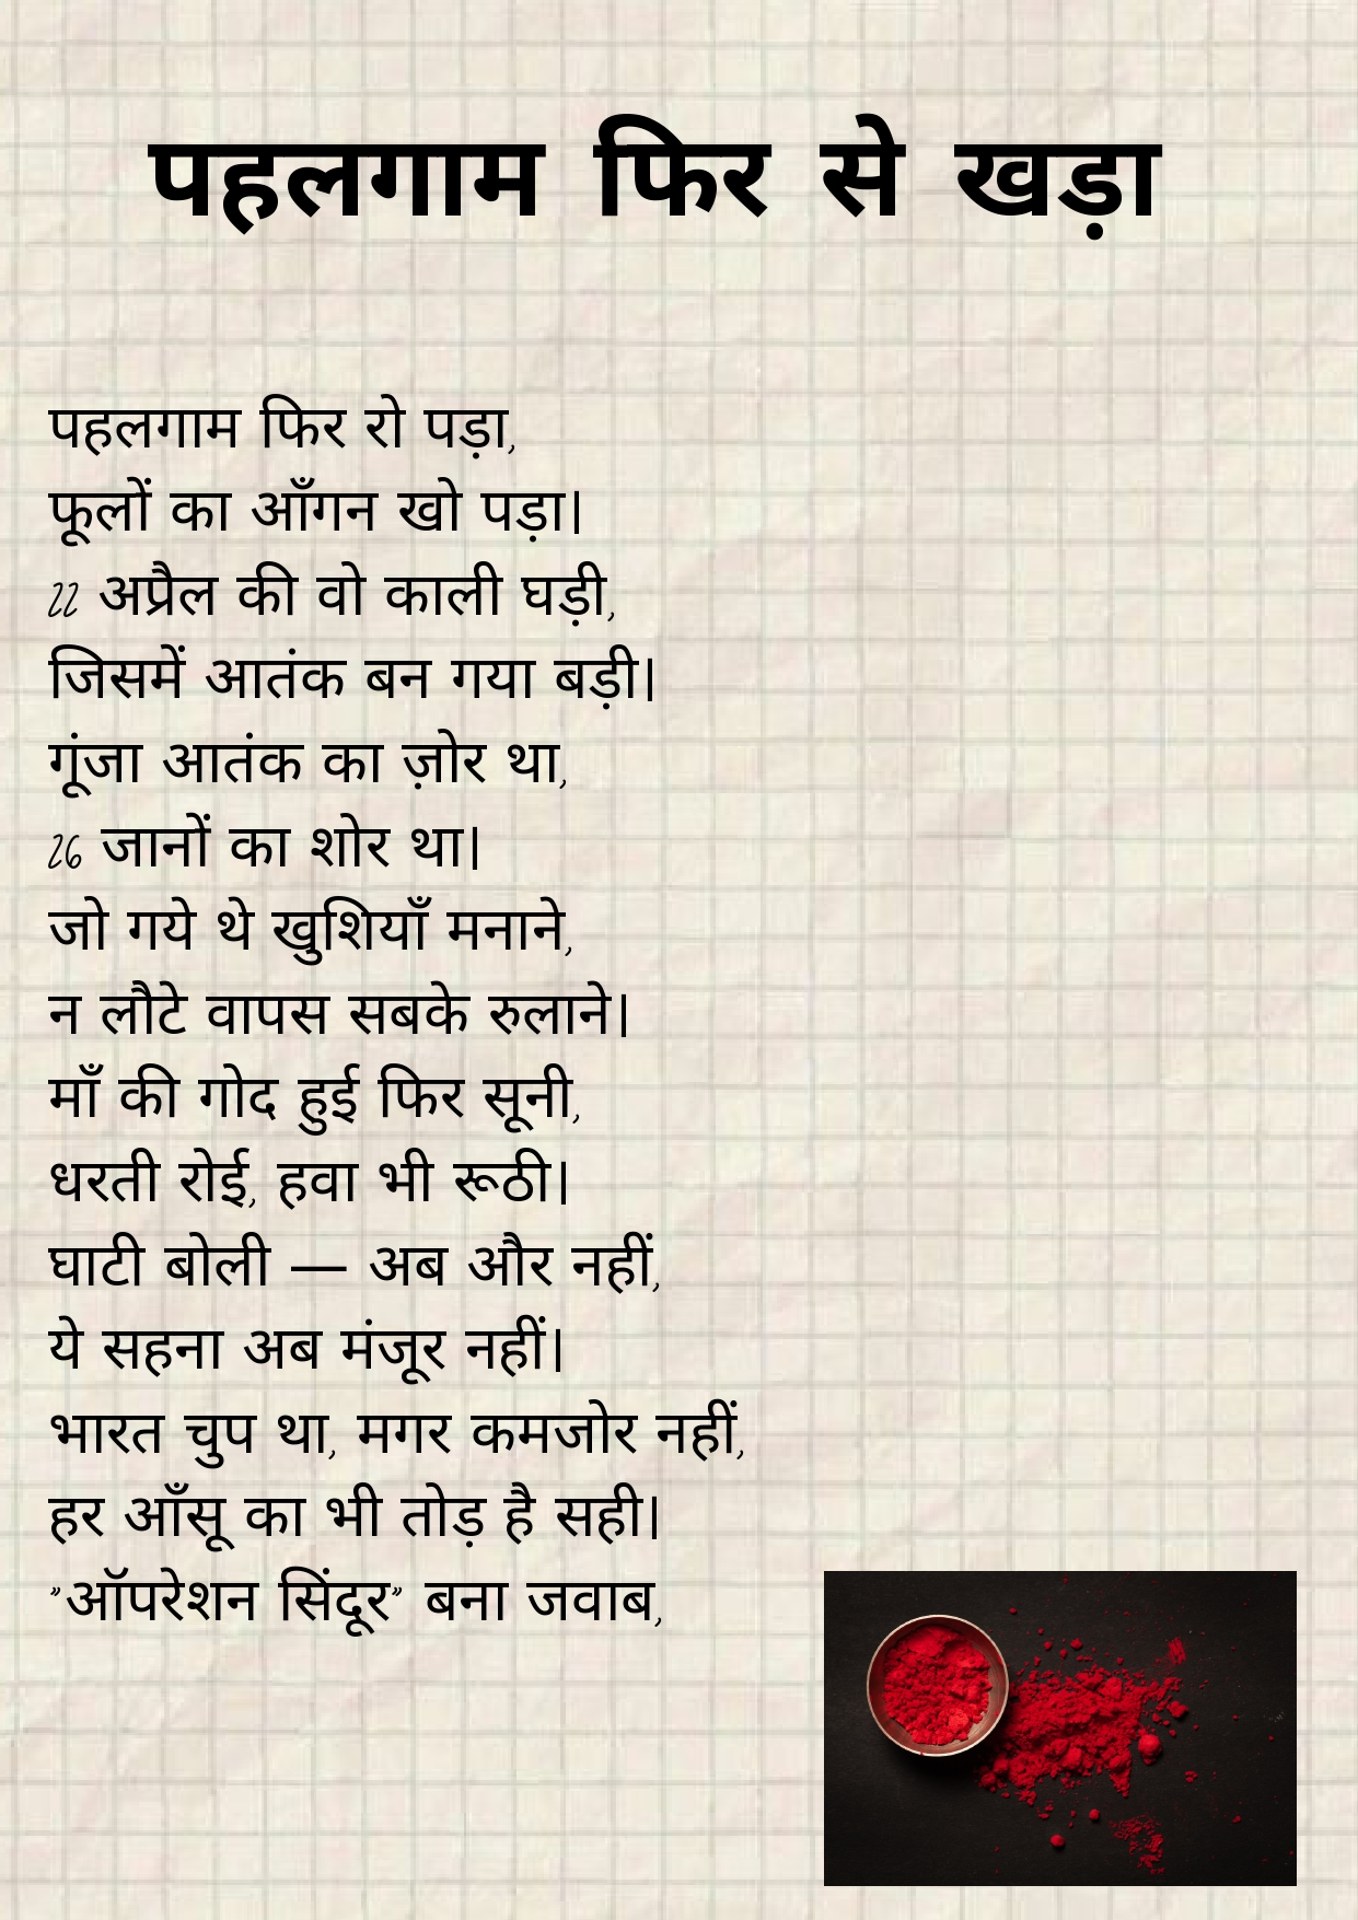 पहलगाम फिर से खड़ा
पहलगाम फिर रो पड़ा,
फूलों का आँगन खो पड़ा।
22 अप्रैल की वो काली घड़ी,
जिसमें आतंक बन गया बड़ी।
गूंजा आतंक का ज़ोर था,
26 जानों का शोर था।
जो गये थे खुशियाँ मनाने,
न लौटे वापस सबके रुलाने।
माँ की गोद हुई फिर सूनी,
धरती रोई, हवा भी रूठी।
घाटी बोली — अब और नहीं,
ये सहना अब मंजूर नहीं।
भारत चुप था, मगर कमजोर नहीं,
हर आँसू का भी तोड़ है सही।
"ऑपरेशन सिंदूर" बना जवाब,